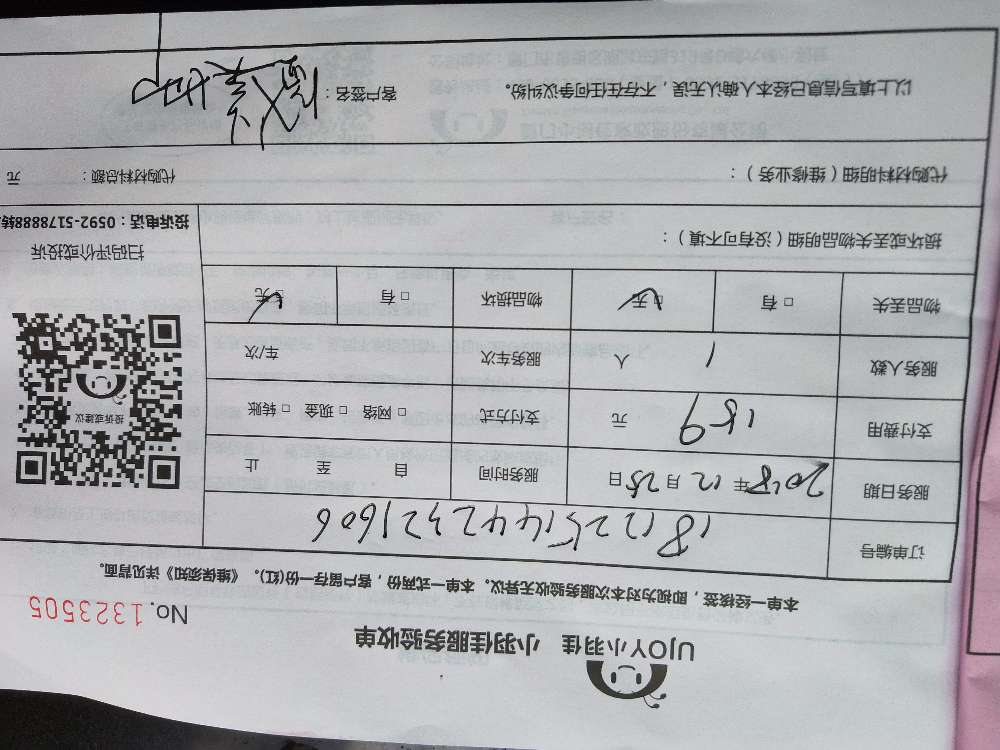 UJOY小羽佳 小羽佳服务验收单
No. 1323505
本单一经核签，即视为对本次服务验收无异议。本单一式两份，客户留存一份(红)。《维保须知》详见背面。
订单编号 1812251442321606
服务日期 2018年12月25日 服务时间 自 至 止
支付费用 189 元 支付方式 □ 网络 □ 现金 □ 转账
服务人数 1 人 服务车次 车/次
物品丢失 □ 有 □ 无 物品损坏 □ 有 □ 无
投诉或建议
扫码评价或投诉
投诉电话：0592-5178888转
损坏或丢失物品明细（没有可不填）：
代购材料明细（维修业务）： 代购材料总额： 元
以上填写信息已经本人确认无误，不存在任何争议纠纷。 客户签名：